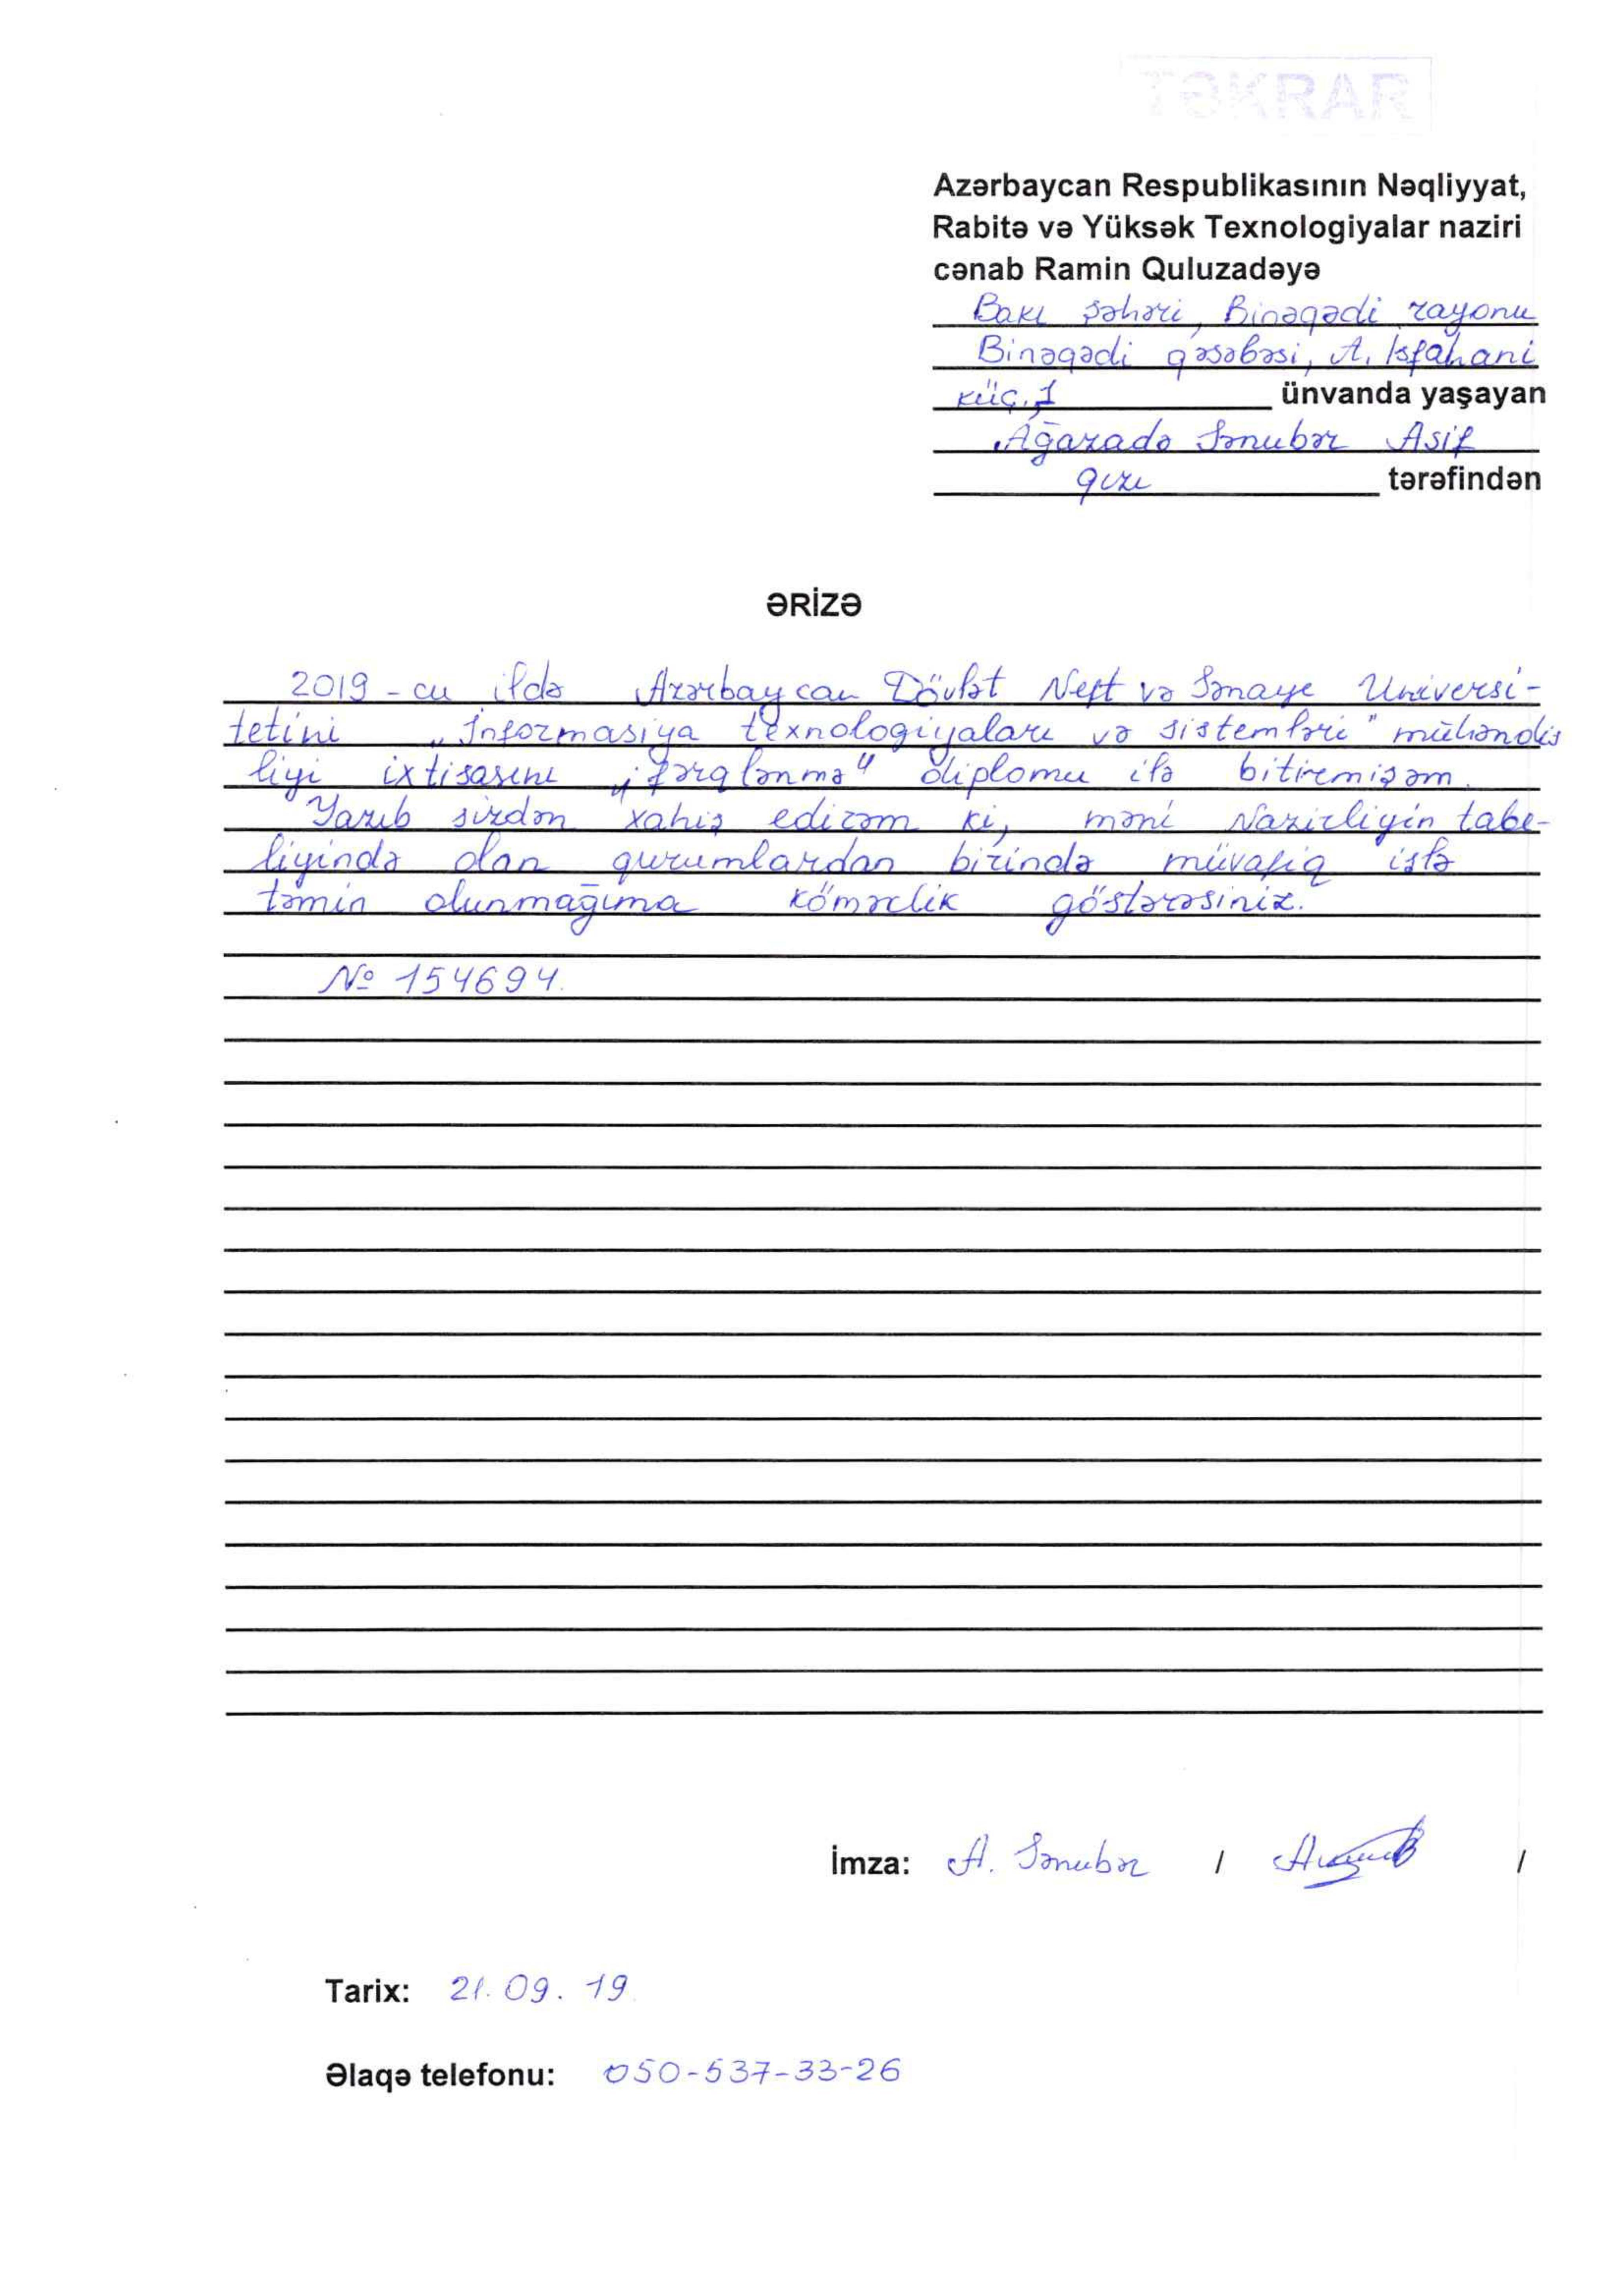 TƏKRAR
Azərbaycan Respublikasının Nəqliyyat,
Rabitə və Yüksək Texnologiyalar naziri
cənab Ramin Quluzadəyə
Bakı şəhəri, Binəqədi rayonu
Binəqədi qəsəbəsi, A. İsfahani
küç. 1 ünvanda yaşayan
Ağazadə Sənubər Asif
qızı tərəfindən
ƏRİZƏ
2019-cu ildə Azərbaycan Dövlət Neft və Sənaye Universi-
tetini „İnformasiya texnologiyaları və sistemləri" mühəndis
liyi ixtisasını „fərqlənmə" diplomu ilə bitirmişəm.
Yazıb sizdən xahiş edirəm ki, məni Nazirliyin tabe-
liyində olan qurumlardan birində müvafiq işlə
təmin olunmağıma köməklik göstərəsiniz.
№ 154694.
İmza: A. Sənubər / /
Tarix: 21.09.19
Əlaqə telefonu: 050-537-33-26